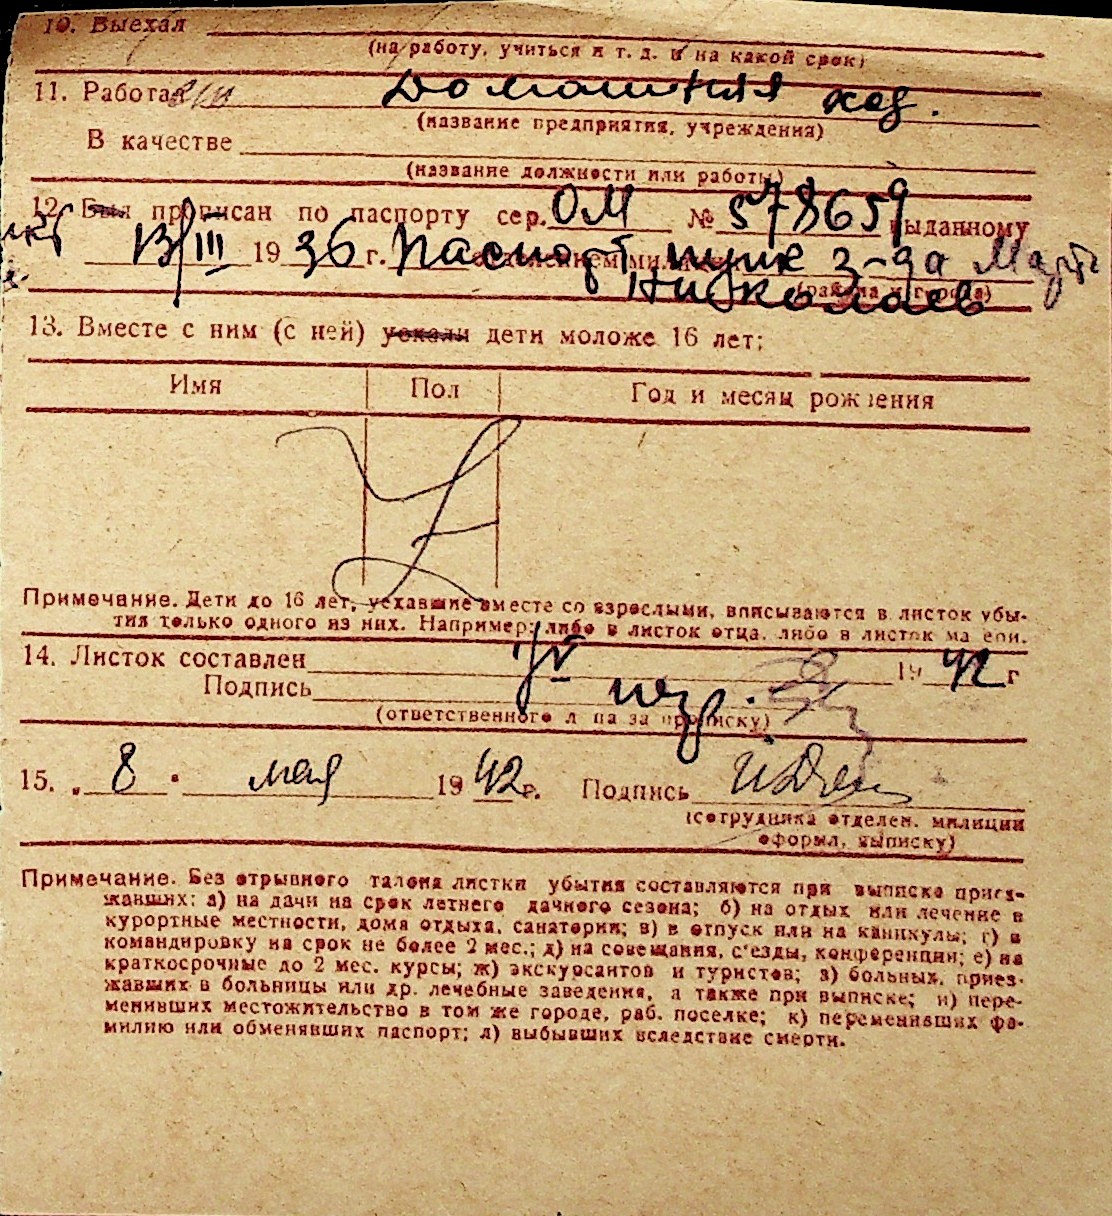 10. Выехал
(на работу, учиться и т. д. и на какой срок)
11. Работа Домашняя хоз.
(название предприятия, учреждения)
В качестве
(название должности или работы)
12. Был прописан по паспорту сер. ОМ № 578659 выданному
13/III 1936 г. Паспорт пунк з-да Марти
Николаев
(района и города)
13. Вместе с ним (с ней) уехали дети моложе 16 лет:
Имя Пол Год и месяц рождения
Примечание. Дети до 16 лет, уехавшие вместе со взрослыми, вписываются в листок убы-
тия только одного из них. Например: либо в листок отца, либо в листок матери.
14. Листок составлен 7/V 1942 г
Подпись
(ответственного лица за прописку)
15. „ 8 " мая 1942 г. Подпись
(сотрудника отделен. милиции
оформл. выписку)
Примечание. Без отрывного талона листки убытия составляются при выписке приез-
жавших: а) на дачи на срок летнего дачного сезона; б) на отдых или лечение в
курортные местности, дома отдыха, санатории; в) в отпуск или на каникулы; г) в
командировку на срок не более 2 мес.; д) на совещания, с'езды, конференции; е) на
краткосрочные до 2 мес. курсы; ж) экскурсантов и туристов; з) больных, приез-
жавших в больницы или др. лечебные заведения, а также при выписке; и) пере-
менивших местожительство в том же городе, раб. поселке; к) переменивших фа-
милию или обменявших паспорт; л) выбывших вследствие смерти.